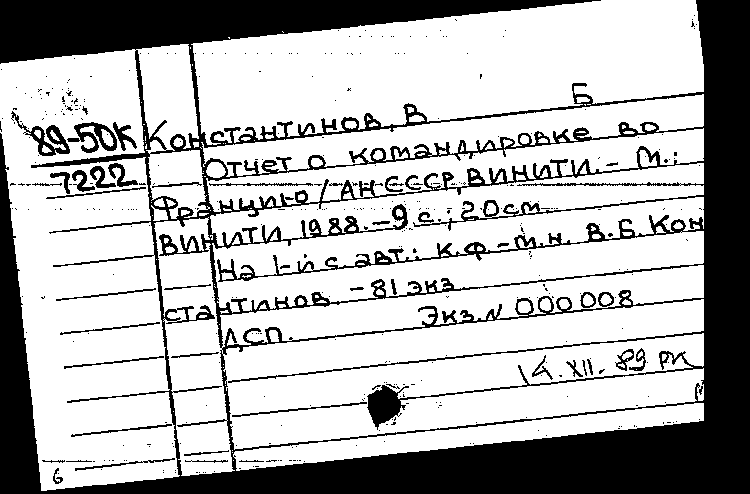 Б
89-50К Константинов, В
7222 Отчет о командировке во
Францию / АН СССР, ВИНИТИ. - М.:
ВИНИТИ, 1988. - 9 с.; 20см.
На 1-й с. авт.: к.ф.-м.н. В.Б. Кон
стантинов - 81 экз
ДСП. Экз. N 000008
14.XII.89 РК
6